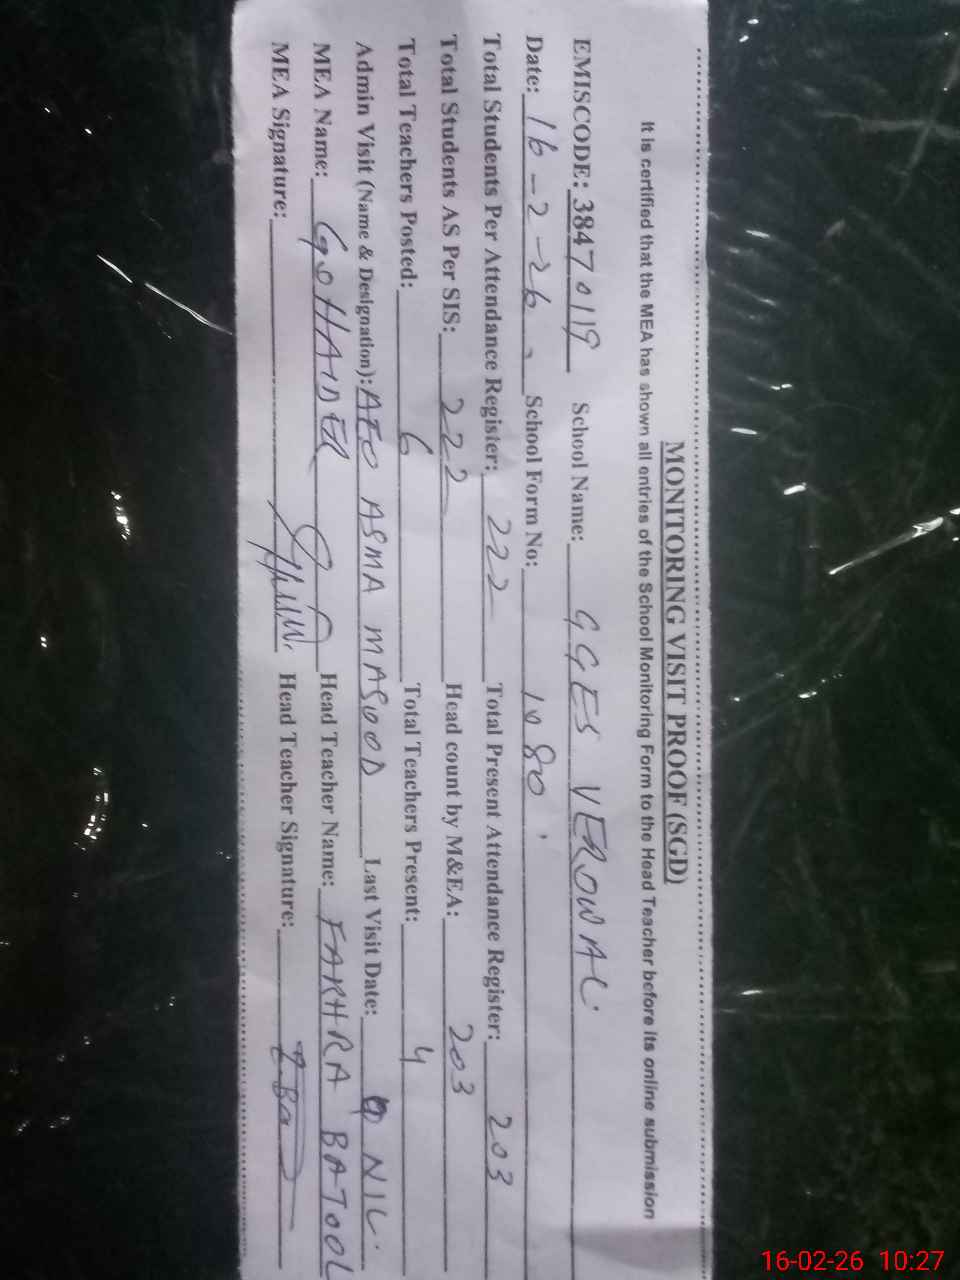 MONITORING VISIT PROOF (SGD)
It is certified that the MEA has shown all entries of the School Monitoring Form to the Head Teacher before its online submission
EMISCODE: 38470119 School Name: GGES VEROWAL.
Date: 16-2-26 School Form No: 1080
Total Students Per Attendance Register: 222 Total Present Attendance Register: 203
Total Students AS Per SIS: 222 Head count by M&EA: 203
Total Teachers Posted: 6 Total Teachers Present: 4
Admin Visit (Name & Designation): AEO ASMA MASOOD Last Visit Date: NIL.
MEA Name: HAIDER Head Teacher Name: FAKHRA BATOOL
MEA Signature: Head Teacher Signature:
16-02-26 10:27